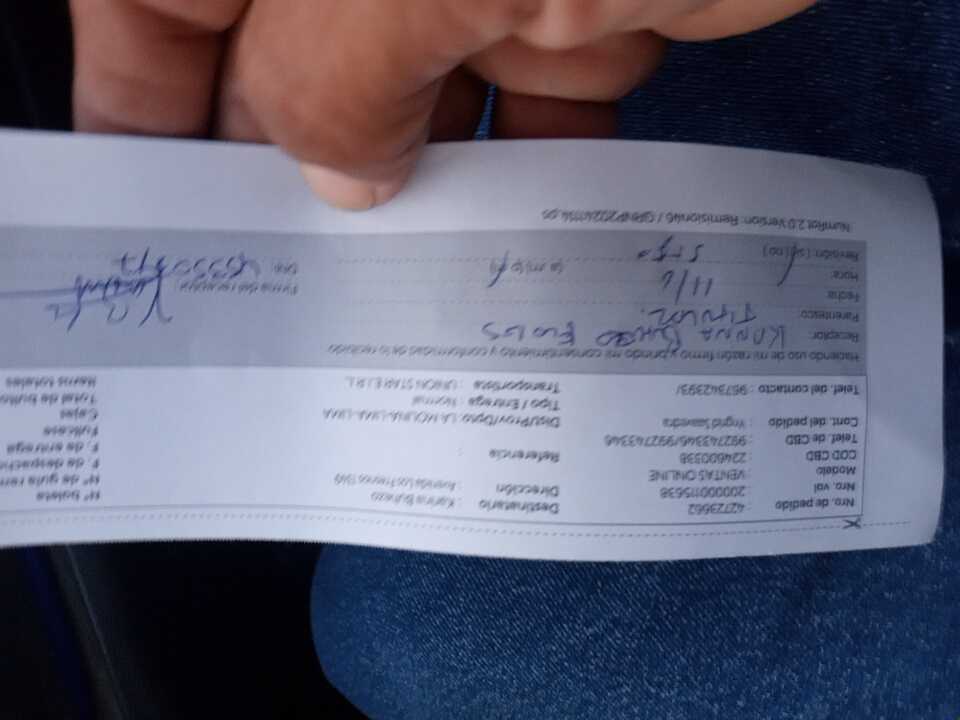 Nro. de pedido : 42723662 Destinatario : Karina Buhezo Nº boleta
Nro. vol : 200000115638 Dirección : Avenida Los Fresnos 1349 Nº de guía rem
Modelo : VENTAS ONLINE F. de despacho
COD CBD : 224600338 Referencia : F. de entrega
Telef. de CBD : 992743346/992743346 Fullcase
Cont. del pedido : Yngrid Saavedra Dist/Prov/Dpto. : LA MOLINA-LIMA-LIMA Cajas
Tipo / Entrega : Normal Total de bultos
Telef. del. contacto : 967342393/ Transportista : UNION STAR E.I.R.L Items totales
Haciendo uso de mi razón firmo y brindo mi consentimiento y conformidad de lo recibido
Receptor:
Parentesco: TITULAR.
Fecha: 11/6 Firma del receptor:
Hora: (a.m)(p.m) DNI:
Revisión: (si)(no)
NumRot 2.0 Version: Remision46 /